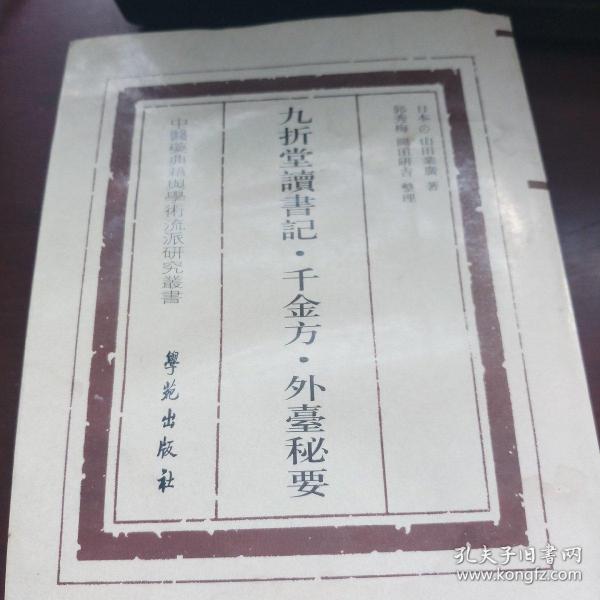 日本 の 山田業廣 著
郭秀梅 岡田研吉 整理
九折堂讀書記·千金方·外臺秘要
中醫藥典籍與學術流派研究叢書
學苑出版社
孔夫子旧书网
www.kongfz.com